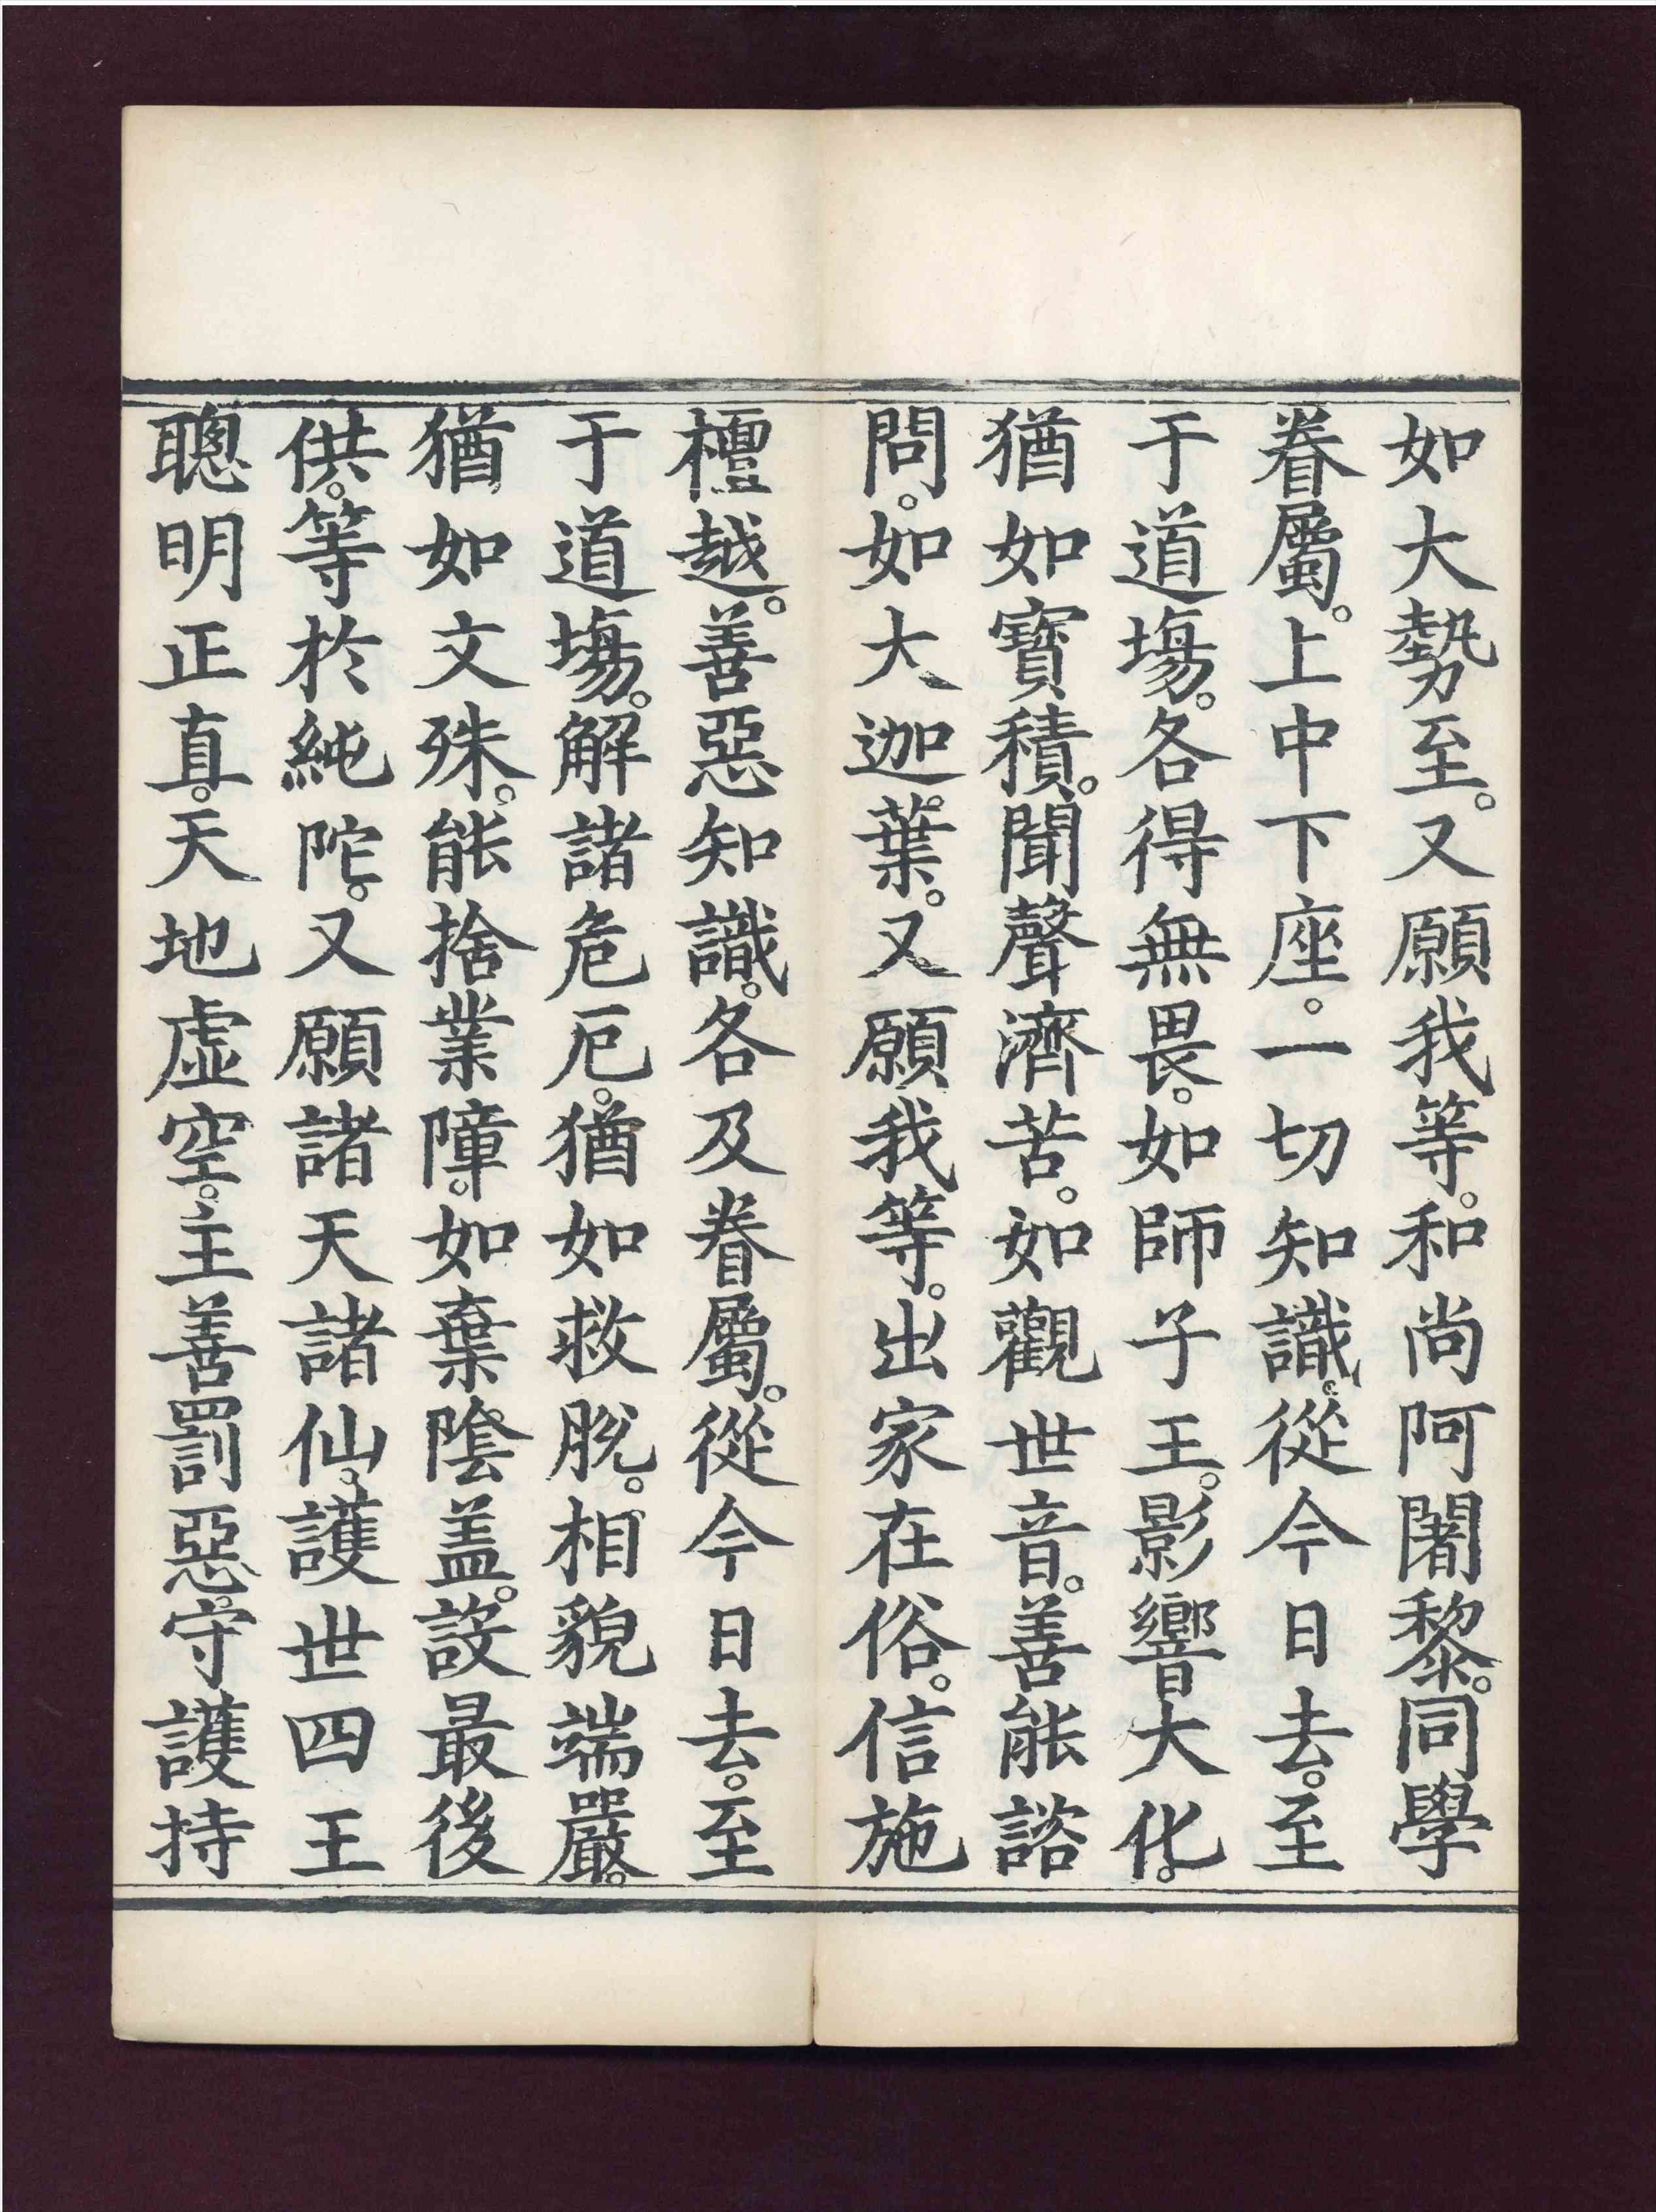 如大勢至。又願我等。和尚阿闍黎。同學
眷屬。上中下座。一切知識。從今日去。至
于道塲。各得無畏。如師子王。影響大化。
猶如寶積。聞聲濟苦。如觀世音。善能諮
問。如大迦葉。又願我等。出家在俗。信施
檀越。善惡知識。各及眷屬。從今日去。至
于道塲。解諸危厄。猶如救脫。相貌端嚴。
猶如文殊。能捨業障。如棄陰盖。設最後
供。等於純陀。又願諸天諸仙。護世四王
聰明正直。天地虛空。主善罰惡。守護持